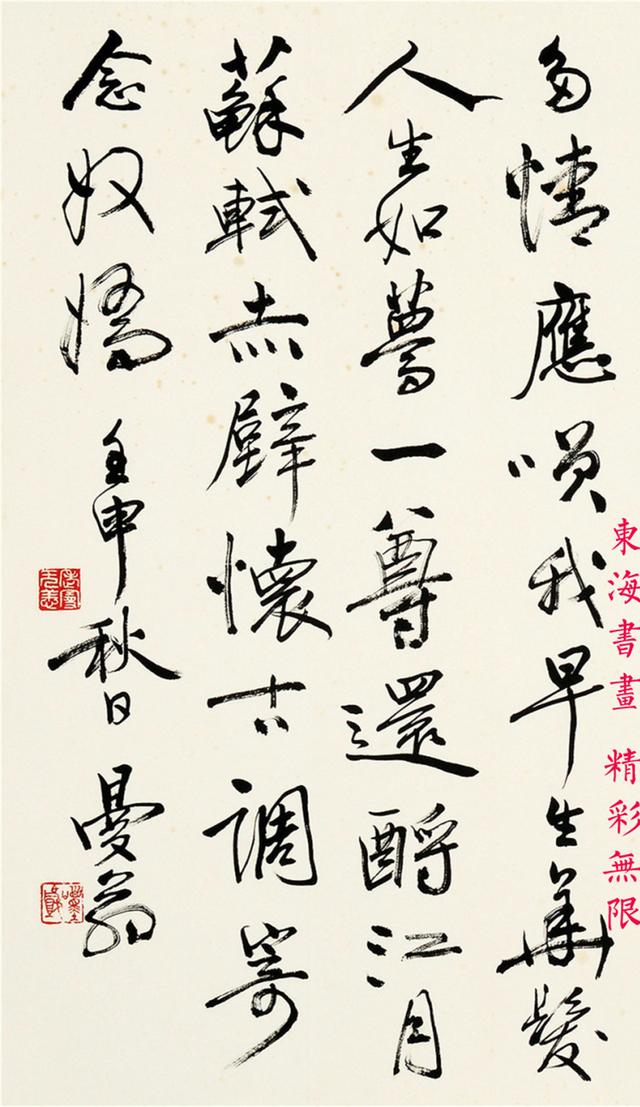 多情應唤我早生華髮
人生如夢一尊還酹江月
蘇軾赤壁懷古調寄
念奴嬌 壬申秋日 曼翁
東海書畫 精彩無限